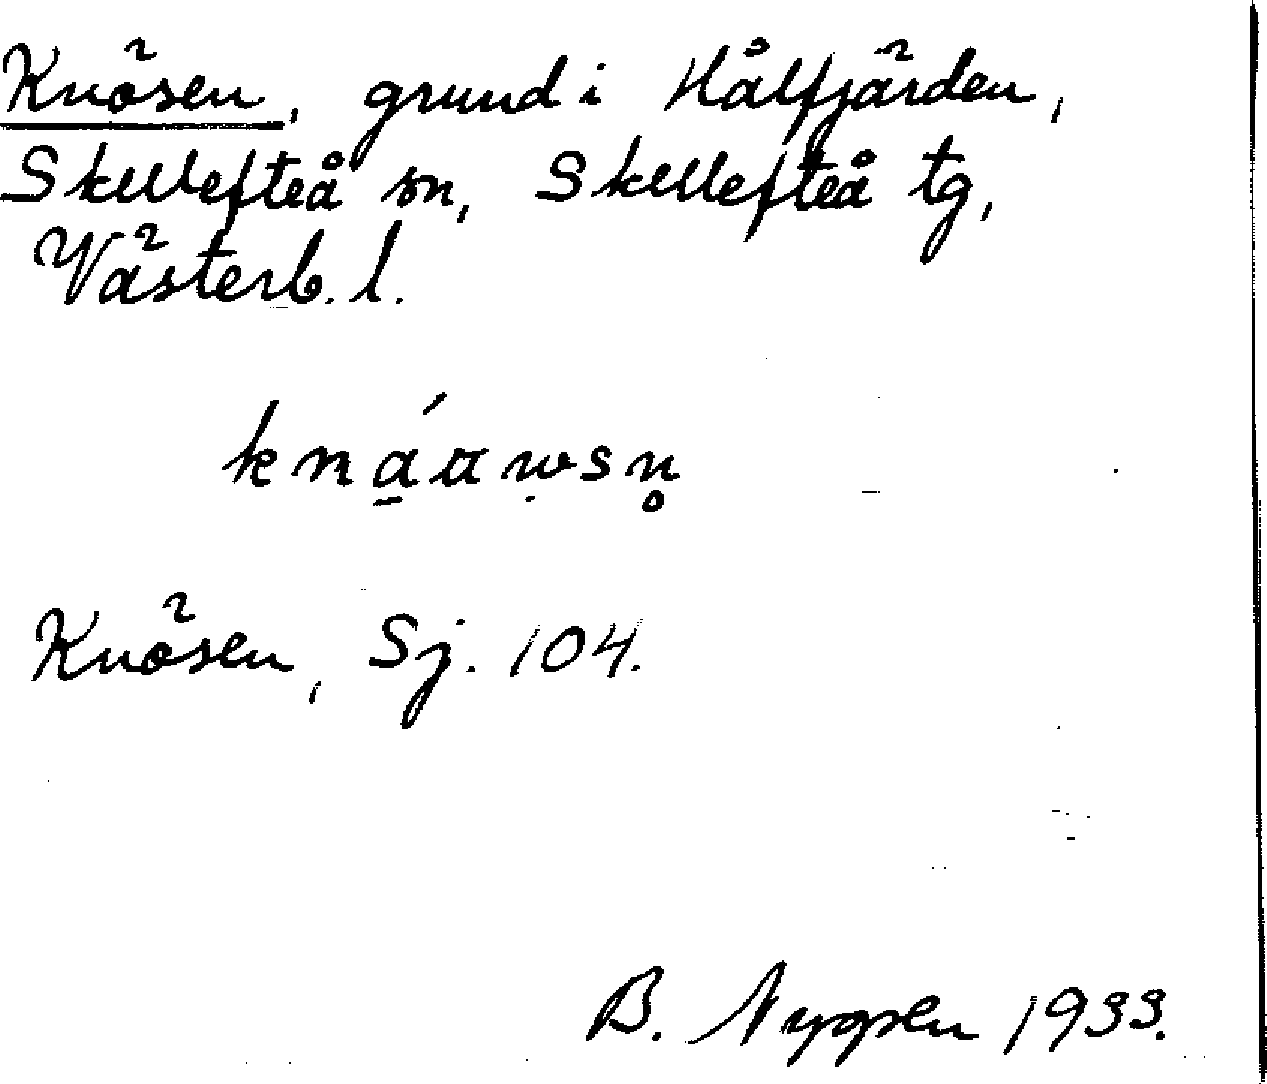 Knösen, grund i Hålfjärden,
Skellefteå sn, Skellefteå tg,
Västerb. l.
Knösen, Sj. 104.
B. 1933.